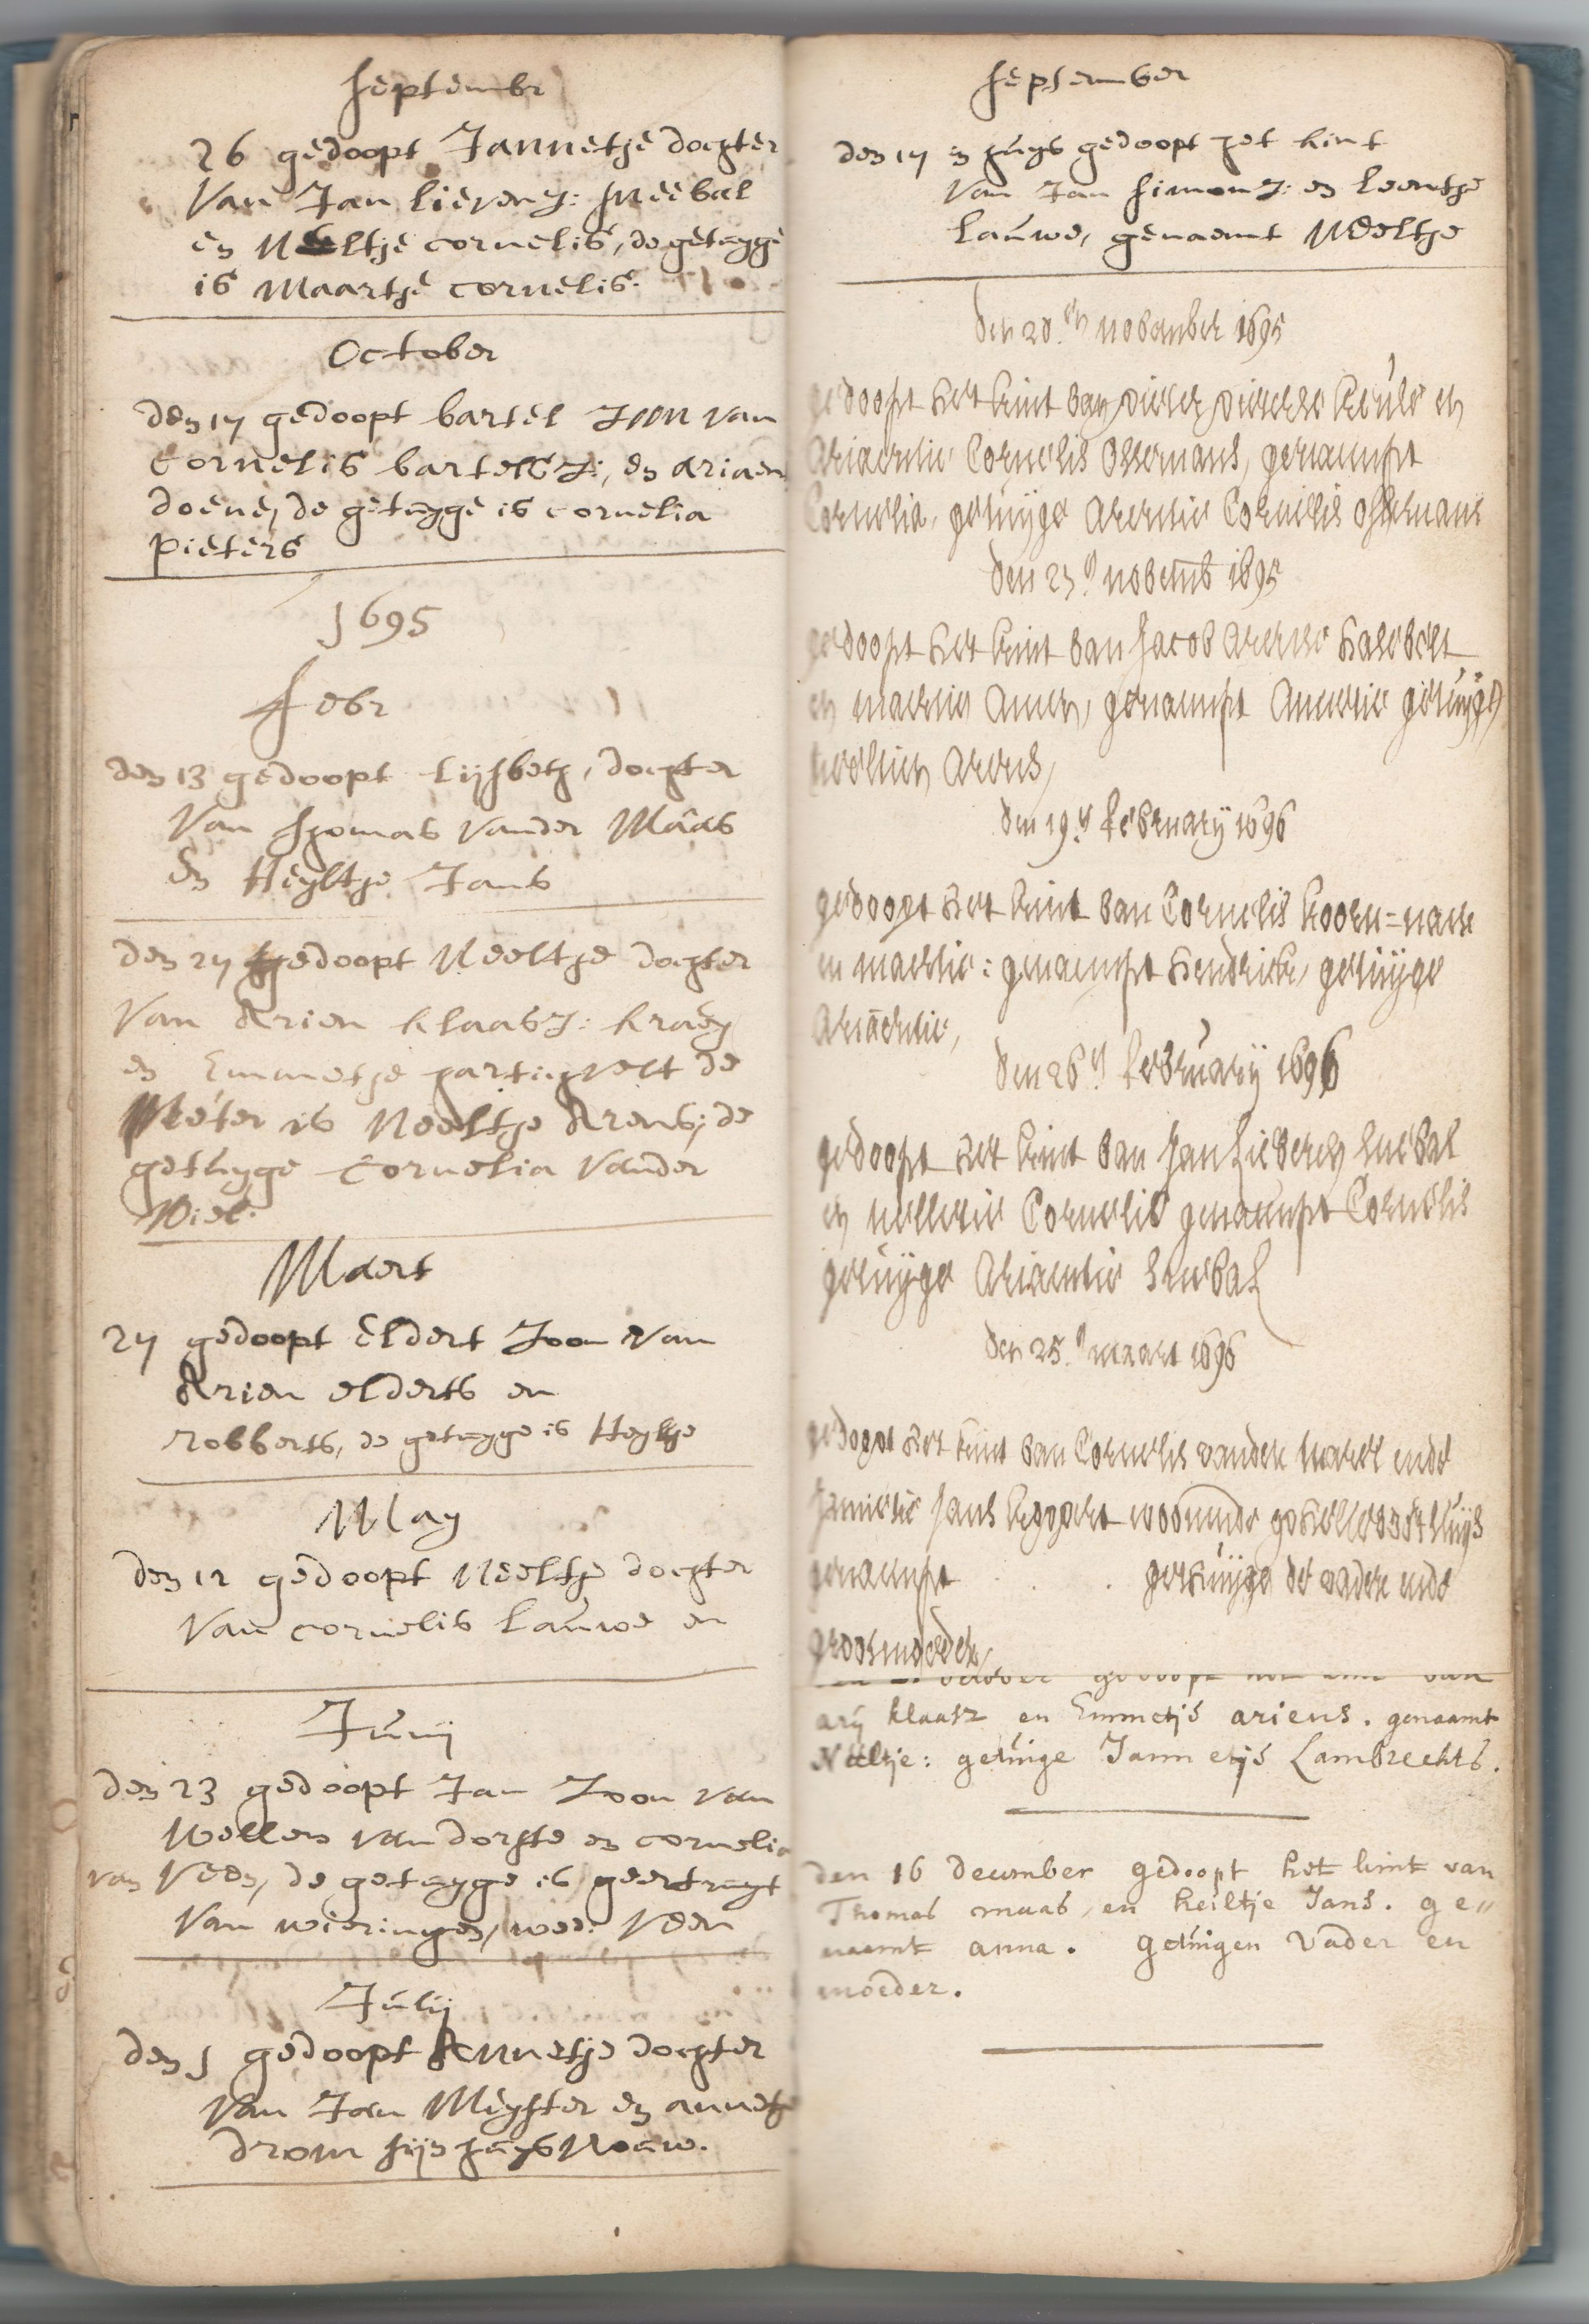 Septembr
26 gedoopt Jannetje dochter
Van Jan lievensz: sneebal
en Neeltje cornelis, de getuyge
is Maartje cornelis.
October
den 17 gedoopt bartel zoon van
Cornelis bartelsz:, en ariaen
doene, de getuyge is cornelia
pieters
1695
Febr
den 13 gedoopt lijsbeth, dochter
Van thomas Vander Maas
En Heyltje Jans
den 27 gedoopt Neeltje dochter
Van Arien klaasz: kraey
en Emmetje hartigvelt de
Meter is Neeltje Arens; de
getuyge Cornelia Vander
Wiel.
Maert
27 gedoopt Eldert Zoon van
Arien elderts en
robberts, de getuyge is Heyltje
May
den 12 gedoopt Neeltje dochter
Van cornelis Lauwe en
Junij
den 23 gedoopt Jan Zoon van
Wellem van dorste en cornelia
van Veen, de getuyge is geertruyt
Van wieringen, wed: Veen
Julij
den 1 gedoopt Annetje dochter
Van Jan Meyster en annetje
drom sijn huysvrouw.
September
den 17 in huys gedoopt het kint
Van Jan Simonz: en leentje
Lauwe, genaemt Neeltje
den 20.en november 1695
gedoopt het kint van dirck dircksz en
Ariaentie Cornelis Ossemans, genaempt
Cornelia, getuyge Arentie Cornelis Ossemans
den 27 novemb 1695
gedoopt het kint van Jacob Arense
en maertie, genaempt Annetie getuyge
neeltien Arens,
den 19 february 1696
gedoopt het kint van Cornelis koorn=
en maertie: genaempt hendrick, getuyge
Ariaentie,
den 26 february 1696
gedoopt het kint van Jan Lievensz snebal
en nelletie Cornelis genaempt Cornelis
getuyge Ariaentie snebal
den 25. maart 1696
gedoopt het kint van Cornelis vander ende
Jannetie Jans woonende hellevoetsluijs
genaempt getuijge de vader ende
grootmoeder
october gedoopt het kint van
arij klaasz en Emmetje ariens. genaamt
Neeltje: getuige Jannetje Lambrechts.
den 16 december gedoopt het kint van
Thomas maas, en heiltje Jans. ge"
naemt anna. getuigen Vader en
moeder.